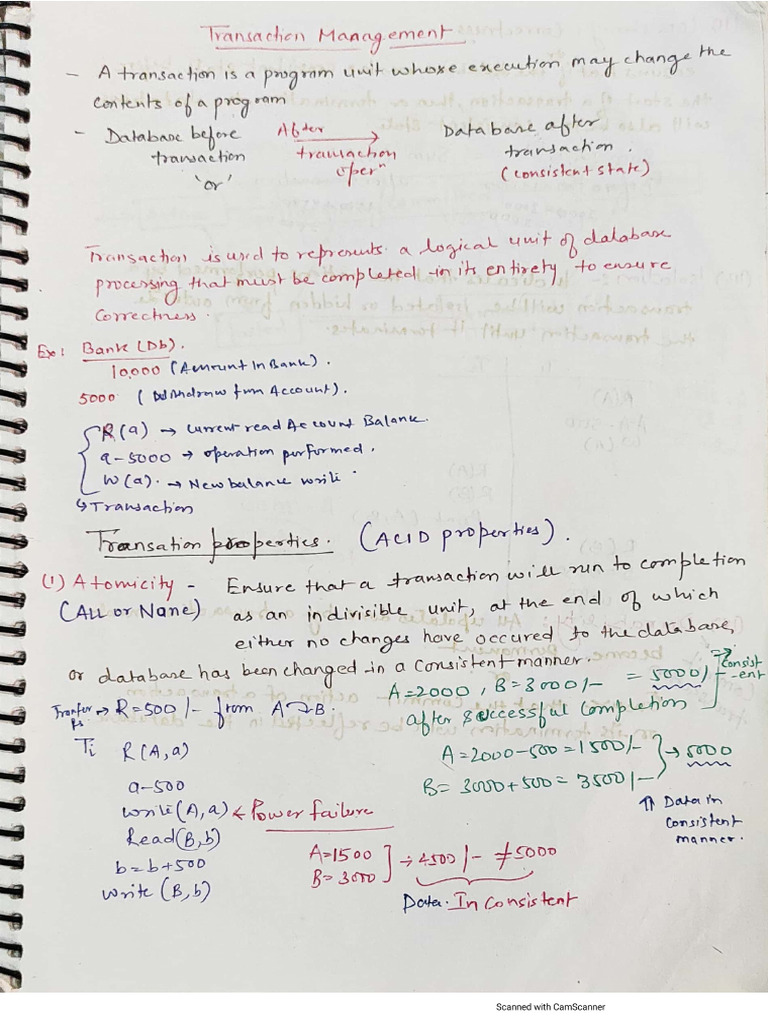 Transaction Management
- A transaction is a program unit whose execution may change the
contents of a program
- Database before After Database after
transaction transaction transaction.
'or' oper^n (consistent state)
Transaction is used to represents a logical unit of database
processing that must be completed in its entirety to ensure
correctness.
Ex: Bank (Db).
10,000 (Amount in Bank).
5000 (Withdraw from Account).
R(a) → current read Account Balance.
a-5000 → operation performed.
W(a). → New balance write.
↳ Transaction
Transation properties. (ACID properties).
(1) Atomicity - Ensure that a transaction will run to completion
(All or Nane) as an indivisible unit, at the end of which
either no changes have occured to the database,
or database has been changed in a consistent manner.
A=2000, B=3000/- = 5000/- ⇒ consist-ent
Tranfer Rs → R=500/- from A→B. after successful completion
Ti R(A,a) A=2000-500=1500/- → 5000
a-500 B= 3000+500= 3500/-
write(A,a) ← Power failure ⇑ Data in
Read(B,b) consistent
manner.
b=b+500 A=1500 → 4500/- ≠5000
write (B,b) B=3000
Data. In consistent
Scanned with CamScanner